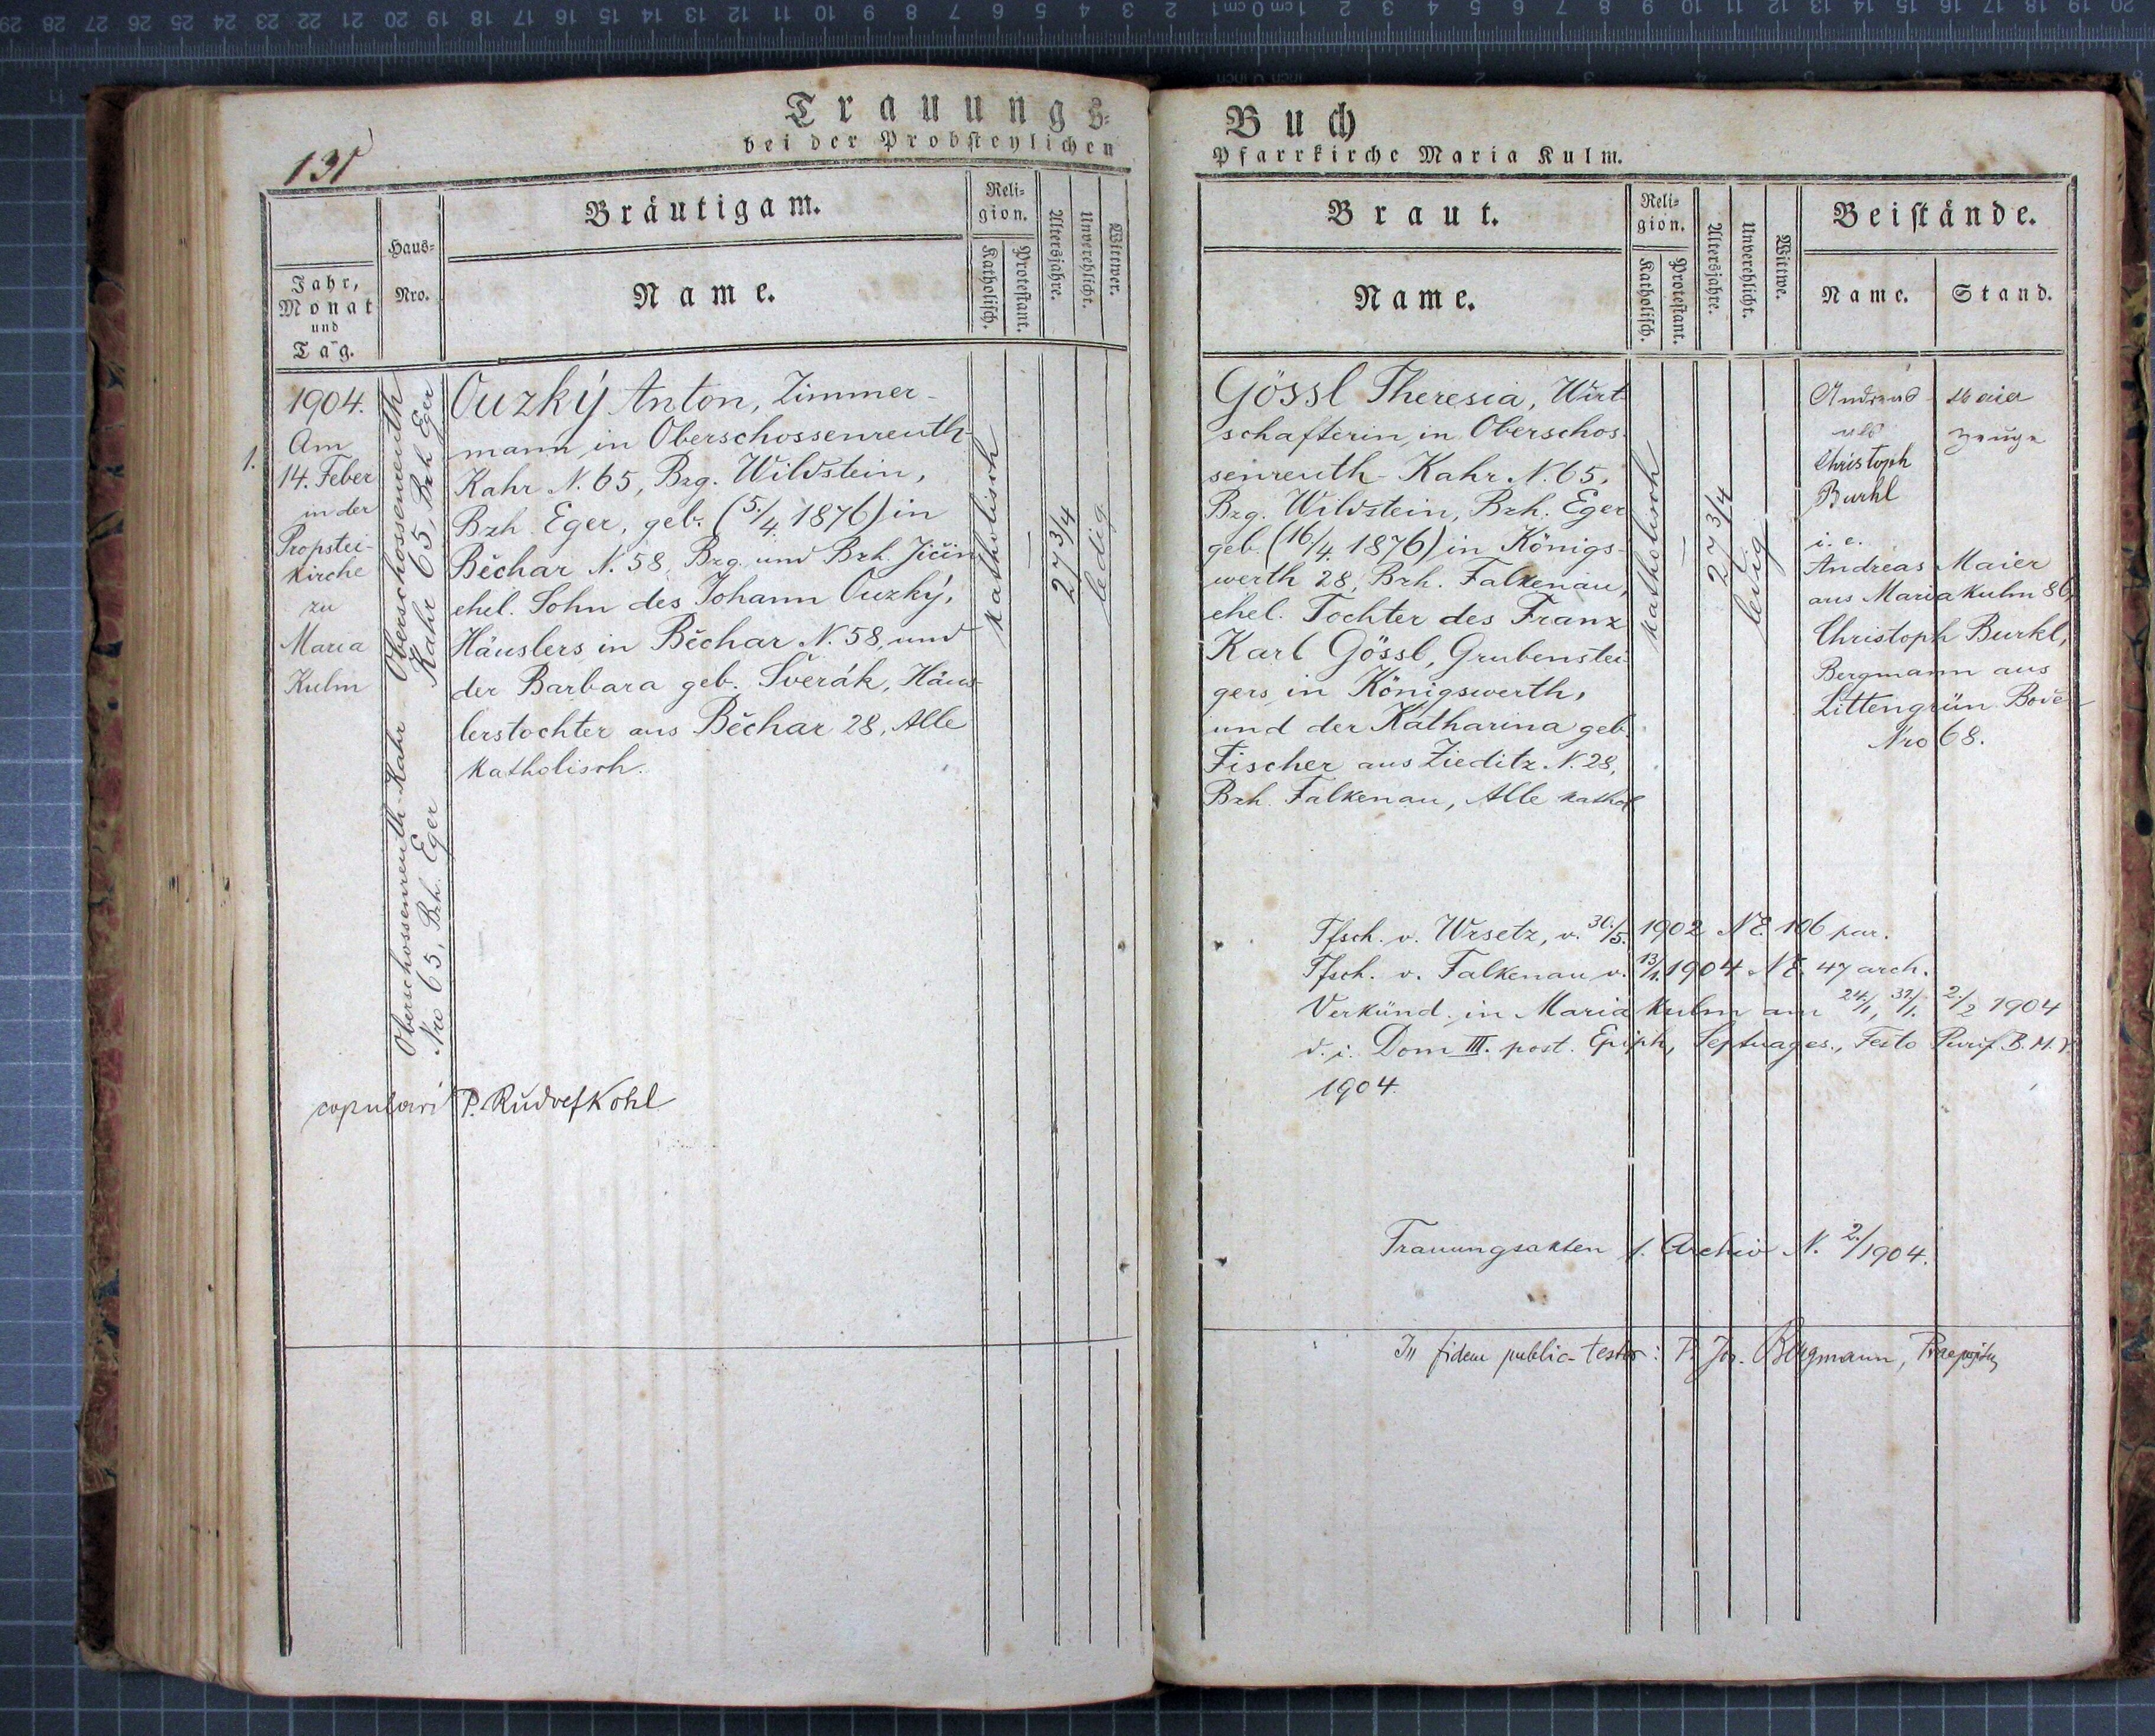 Trauungs-
bei der Probsteylichen
131
Jahr,
Monat
und
Tag.
Haus-
Nro.
Bräutigam.
Name.
Reli-
gion.
Katholisch.
Protestant.
Altersjahre.
Unverehlicht.
Wittwer.
1.
1904.
Am
14. Feber
in der
Propstei-
kirche
zu
Maria
Kulm
Oberschossenreuth
Kahr 65, Bzh Eger
Oberschossenreuth-Kahr
Nro 65, Bzh. Eger
Ouzký Anton, Zimmer-
mann in Oberschossenreuth-
Kahr N. 65, Bzg. Wildstein,
Bzh. Eger, geb. (5./4 1876) in
Běchar N. 58, Bzg. und Bzh. Jičin
ehel. Sohn des Johann Ouzký,
Häuslers in Běchar N. 58, und
der Barbara geb. Šverák, Häus-
lerstochter aus Běchar 28, Alle
katholisch.
katholisch
—
27 3/4
ledig
copulavi P. Rudolf Kohl
Buch
Pfarrkirche Maria Kulm.
Braut.
Name.
Reli-
gion.
Katholisch.
Protestant.
Altersjahre.
Unverehlicht.
Wittwe.
Beistände.
Name.
Stand.
Gössl Theresia, Wirt-
schafterin in Oberschos-
senreuth-Kahr N. 65,
Bzg. Wildstein, Bzh. Eger
geb. (16./4. 1876) in Königs-
werth 28, Bzh. Falkenau,
ehel. Tochter des Franz
Karl Gössl, Grubenstei-
gers in Königswerth,
und der Katharina geb.
Fischer aus Zieditz N. 28,
Bzh. Falkenau, Alle kathol
katholisch
—
27 3/4
ledig
Andreas Maier
als Zeuge
Christoph
Burkl
i. e.
Andreas Maier
aus Maria Kulm 86,
Christoph Burkl,
Bergmann aus
Littengrün
Nro 68.
Tfsch. v. Wrsetz, v. 30./5. 1902 NE. 106 par.
Tfsch. v. Falkenau v. 13/1. 1904 NE. 47 arch.
Verkünd. in Maria Kulm am 24./1, 31./1. 2./2 1904
d. i. Dom III. post. Epiph, Septuages., Festo Purif. B. M. V.
1904.
Trauungsakten f. Archiv N. 2./1904.
In fidem public- testor: P. Jos. Bergmann, Praepositus